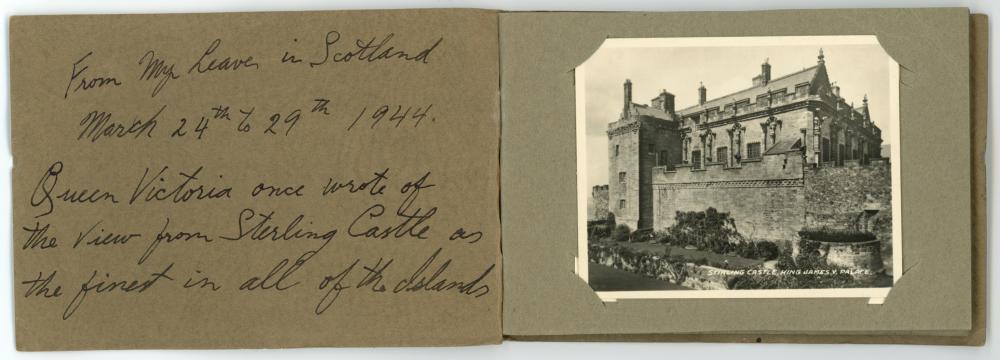 From My Leave in Scotland
March 24th to 29th 1944.
Queen Victoria once wrote of
the view from Sterling Castle as
the finest in all of the Islands
STIRLING CASTLE, KING JAMES V. PALACE.